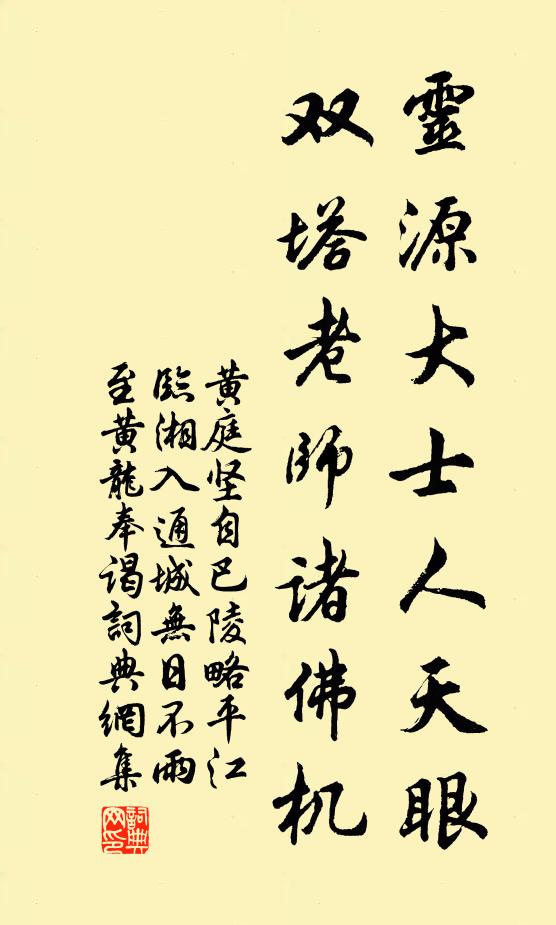 靈源大士人天眼
双塔老師諸佛机
黄庭坚自巴陵略平江
臨湘入通城無日不雨
至黄龍奉謁詞典網集
詞典
网印